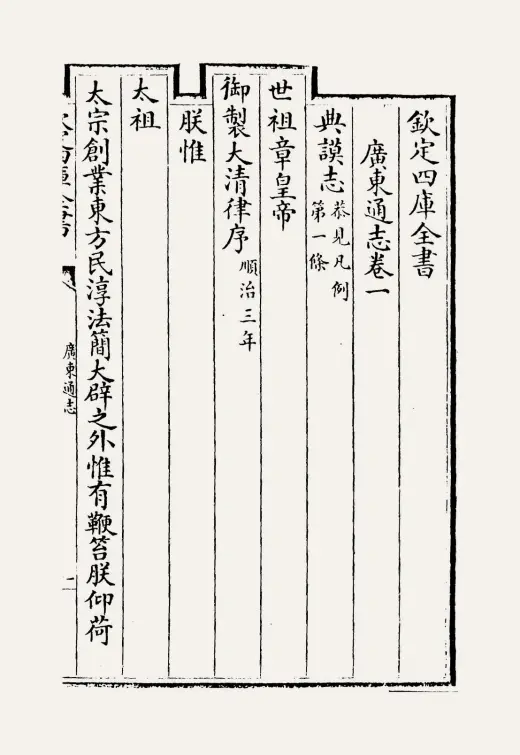 欽定四庫全書
廣東通志卷一
典謨志恭見凡例第一條
世祖章皇帝
御製大清律序順治三年
朕惟
太祖
太宗創業東方民淳法簡大辟之外惟有鞭笞朕仰荷
廣東通志